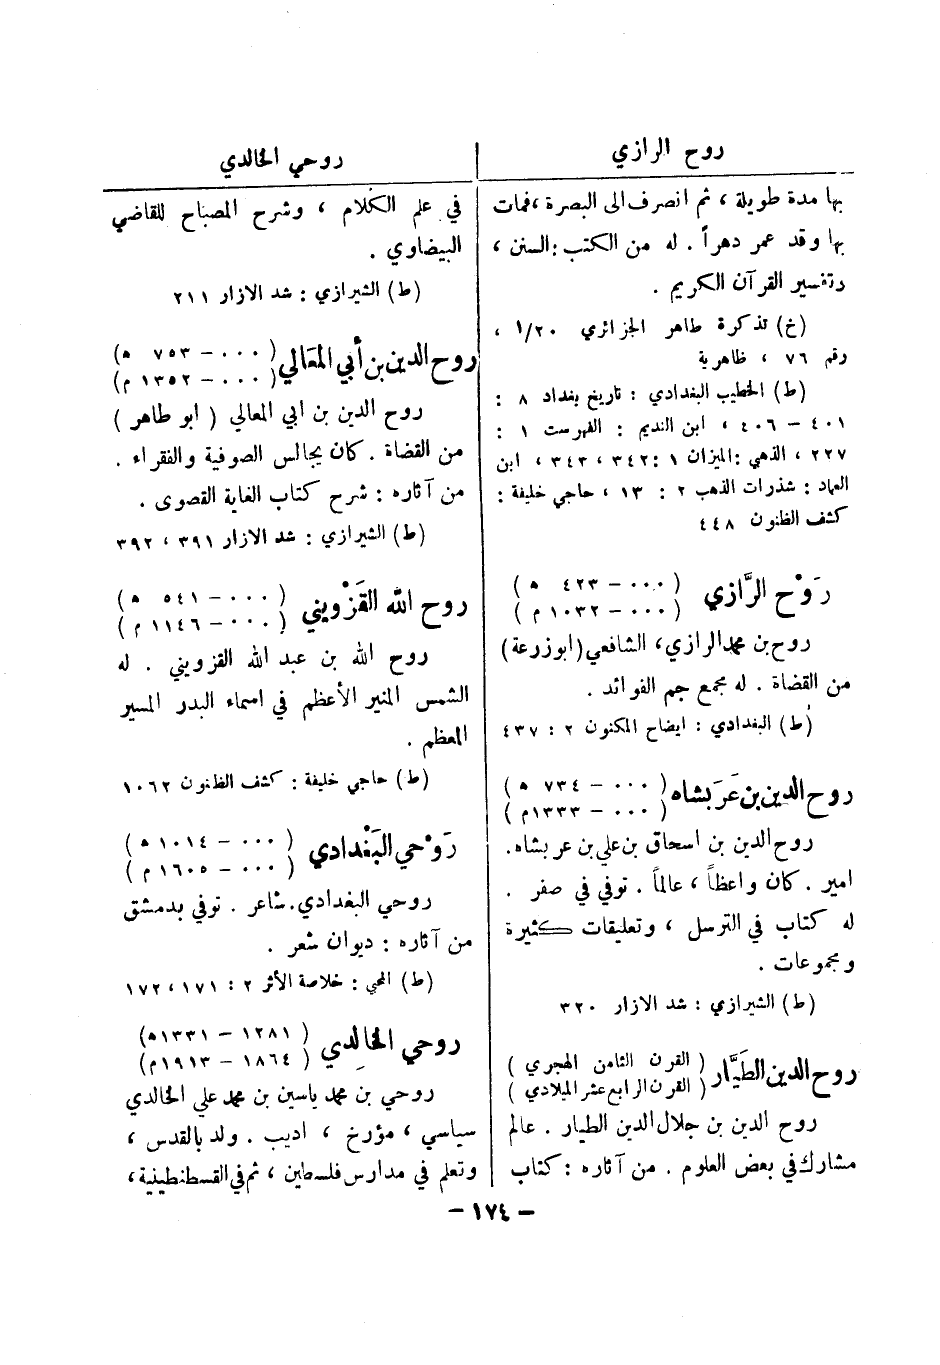 روح الرازي
بها مدة طويلة ، ثم انصرف الى البصرة ،فمات
بها وقد عمر دهراً . له من الكتب : السنن ،
وتفسير القرآن الكريم .
(خ) تذكرة طاهر الجزائري ١/٢٠ ،
رقم ٧٦ ، ظاهرية
(ط) الخطيب البغدادي : تاريخ بغداد ٨ :
٤٠١ – ٤٠٦ ، ابن النديم : الفهرست ١ :
٢٢٧ ، الذهبي :الميزان ١ :٣٤٢ ، ٣٤٣ ، ابن
العماد : شذرات الذهب ٢ : ١٣ ، حاجي خليفة :
كشف الظنون ٤٤٨
رَوْح الرَّازي ( ٠٠٠ – ٤٢٣ ه )
( ٠٠٠ – ١٠٣٢ م )
روح بن محمد الرازي، الشافعي (ابو زرعة)
من القضاة . له مجمع جم الفوائد .
(ط) البغدادي : ايضاح المكنون ٢ : ٤٣٧
روح الدين بن عَرَبشاه ( ٠٠٠ – ٧٣٤ ه )
( ٠٠٠ – ١٣٣٣م )
روح الدين بن اسحاق بن علي بن عربشاه.
امير . كان واعظاً ، عالماً . توفي في صفر .
له كتاب في الترسل ، وتعليقات كثيرة
ومجموعات .
(ط) الشيرازي : شد الازار ٣٢٠
روح الدين الطيَّار ( القرن الثامن الهجري )
( القرن الرابع عشر الميلادي )
روح الدين بن جلال الدين الطيار . عالم
مشارك في بعض العلوم . من آثاره : كتاب
روحي الخالدي
في علم الكلام ، وشرح المصباح للقاضي
البيضاوي .
(ط) الشيرازي : شد الازار ٢١١
روح الدين بن أبي المعَالي ( ٠٠٠ – ٧٥٣ ه )
( ٠٠٠ – ١٣٥٢ م )
روح الدين بن ابي المعالي ( ابو طاهر )
من القضاة . كان يجالس الصوفية والفقراء .
من آثاره : شرح كتاب الغاية القصوى .
(ط) الشيرازي : شد الازار ٣٩١ ، ٣٩٢
روح الله القَزْويني ( ٠٠٠ – ٥٤١ ه )
( ٠٠٠ – ١١٤٦ م )
روح الله بن عبد الله القزويني . له
الشمس المنير الأعظم في اسماء البدر المسير
المعظم .
(ط) حاجي خليفة : كشف الظنون ١٠٦٢
رَوْحي البَغْدادي ( ٠٠٠ – ١٠١٤ ه )
( ٠٠٠ – ١٦٠٥ م )
روحي البغدادي . شاعر . توفي بدمشق
من آثاره : ديوان شعر .
(ط) المحبي : خلاصة الأثر ٢ : ١٧١، ١٧٢
روحي الخالِدي ( ١٢٨١ – ١٣٣١ه )
( ١٨٦٤ – ١٩١٣م )
روحي بن محمد ياسين بن محمد علي الخالدي
سياسي ، مؤرخ ، اديب . ولد بالقدس ،
وتعلم في مدارس فلسطين ، ثم في القسطنطينية ،
– ١٧٤ –